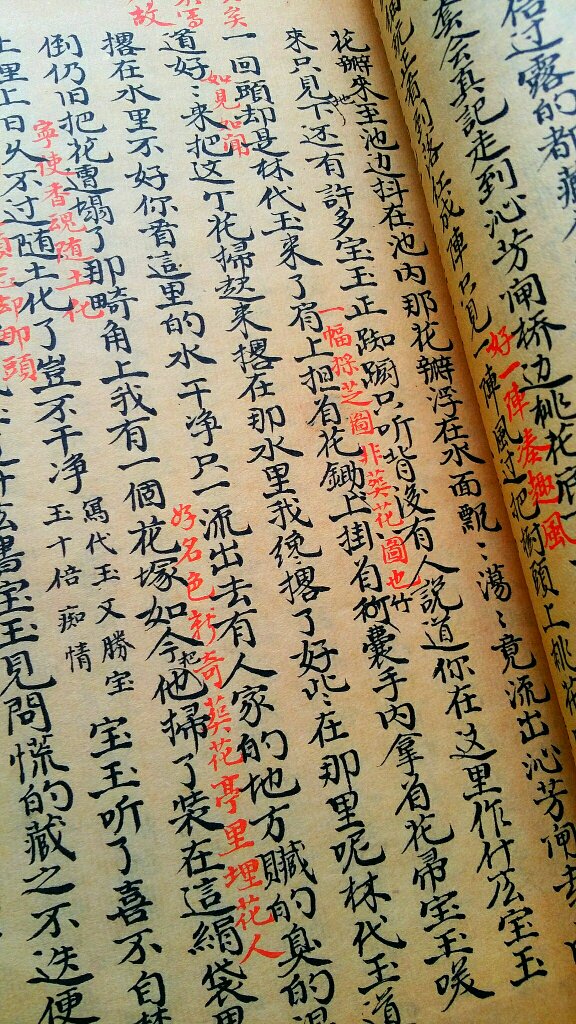 过露的都藏
套会真記走到沁芳闸桥边桃花底
看到落
成陣只見一陣風过把樹頭上桃花
好一陣湊趣風
花瓣来至池边抖在池内那花瓣浮在水面飄ミ荡ミ竟流出沁芳闸去
来只見下还有許多宝玉正踟躕只听背後有人說道你在这里作什庅宝玉
一幅採芝圖非葬花圖也
一回頭却是林代玉来了肩上担着花鋤上掛着囊手内拿着花帚宝玉咲
如見如聞
道好ミ来把这丁花掃起来撂在那水里我纔撂了好些ミ在那里呢林代玉道
撂在水里不好你看這里的水干净只一流出去有人家的地方贜的臭的混
好名色新奇葬花亭里埋花人
倒仍旧把花遭塌了那畸角上我有一個花塚如今起他掃了装在這絹袋里
寧使香魂随土化
土埋上日久不过随土化了豈不干净
寫代玉又勝宝
玉十倍痴情
宝玉听了喜不自禁
却頭
庅書宝玉見問慌的藏之不迭便
矣
故